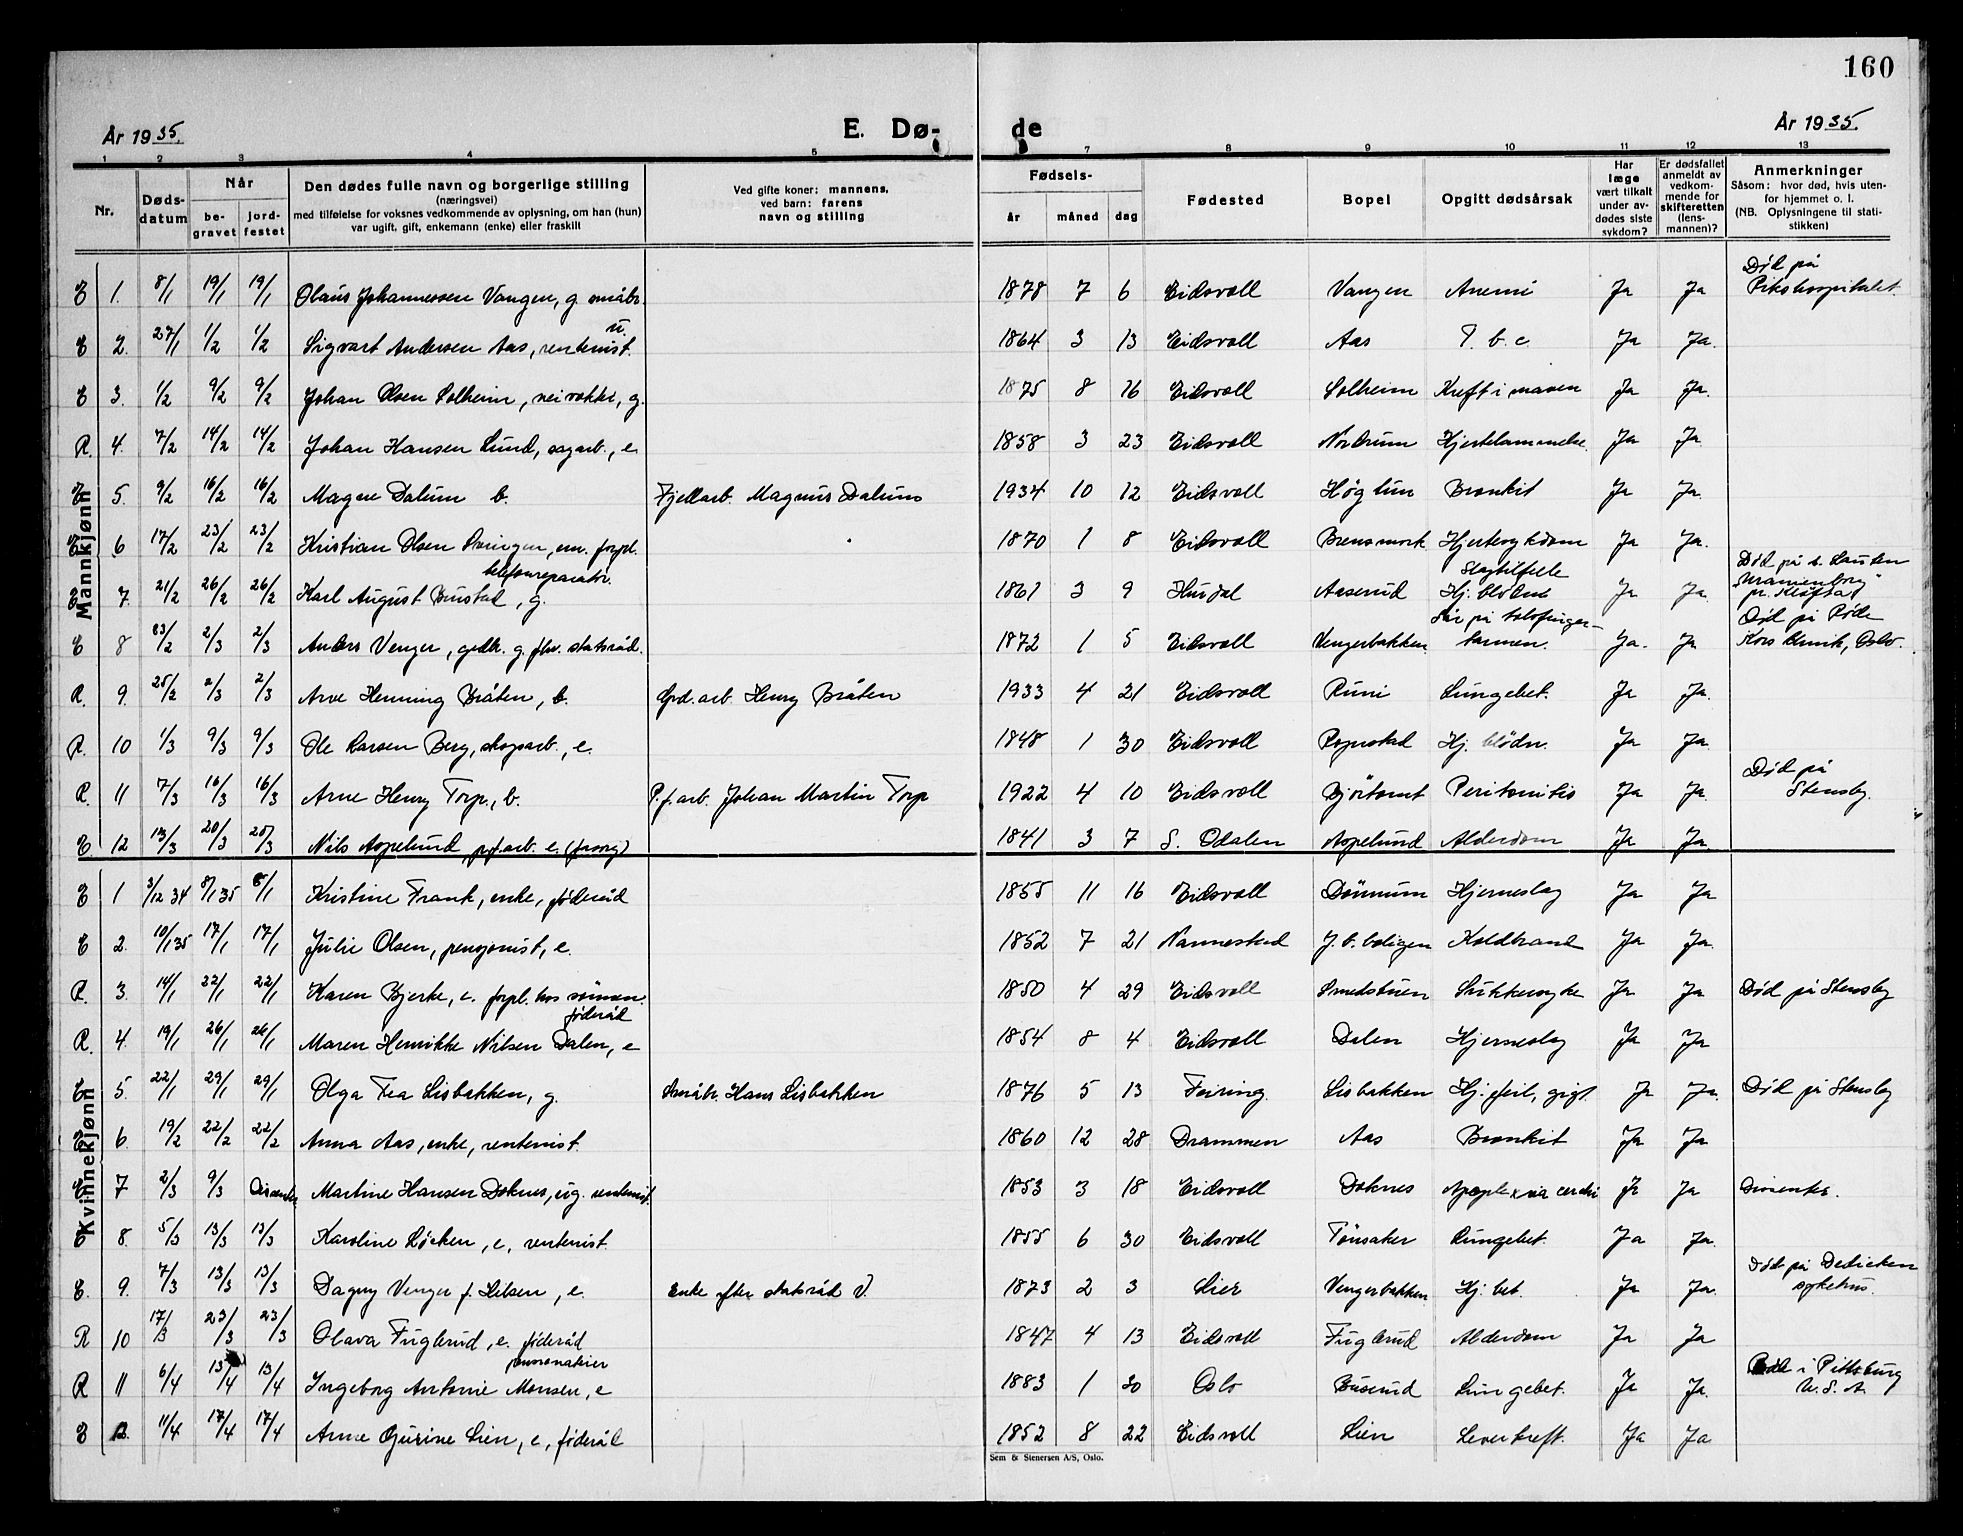 160
År 1935.
E. Dø-
de
År 1935.
1 2 3 4 5 7 8 9 10 11 12 13
Nr.
Døds-
datum
Når
be-
gravet
jord-
festet
Den dødes fulle navn og borgerlige stilling
(næringsvei)
med tilføielse for voksnes vedkommende av oplysning, om han (hun)
var ugift, gift, enkemann (enke) eller fraskilt
Ved gifte koner: mannens,
ved barn: farens
navn og stilling
Fødsels-
år måned dag
Fødested
Bopel
Opgitt dødsårsak
Har
læge
vært tilkalt
under av-
dødes siste
sykdom?
Er dødsfallet
anmeldt av
vedkom-
mende for
skifteretten
(lens-
mannen)?
Anmerkninger
Såsom: hvor død, hvis uten-
for hjemmet o. l.
(NB. Oplysningene til stati-
stikken)
Mannkjønn
E 1. 8/1 19/1 19/1 Olaus Johannessen Vangen, g. småbr. 1878 7 6 Eidsvoll Vangen Anemi Ja Ja Død på
Rikshospitalet.
E 2. 27/1 1/2 1/2 Sigvart Andersen Aas, rentenist. u. 1864 3 13 Eidsvoll Aas T. b. c. Ja Ja.
E 3. 1/2 9/2 9/2 Johan Olsen Solheim, veivokter, g. 1875 8 16 Eidsvoll Solheim Kreft i maven Ja Ja.
R. 4. 7/2 14/2 14/2 Johan Hansen Lund, sagarb., e. 1858 3 23 Eidsvoll Nordrum Hjertelammelse. Ja Ja.
E 5. 9/2 16/2 16/2 Magne Dalum b. Fjellarb. Magnus Dalum 1934 10 12 Eidsvoll Høgtun Bronkit Ja Ja.
E 6 17/2 23/2 23/2 Kristian Olsen em. forpl. 1870 1 8 Eidsvoll Brensmork Hjertesykdom Ja Ja.
telefonreparatør.
E 7. 21/2 26/2 26/2 Karl August Bustad, g. 1861 3 9 Hurdal Aaserud Slagtilfelle
Hj. blødn. Ja Ja. Død på
"Uranienborg"
pr. Kløfta
E 8 23/2 2/3 2/3 Anders Venger, grdbr. g. fhv. statsråd. 1872 1 5 Eidsvoll Vengerbakken Sår på tolvfinger-
tarmen. Ja. Ja Død på Røde
Kors klinik, Oslo.
R. 9. 25/2 2/3 2/3 Arve Henning Bråten, b. Grd.arb. Henry Bråten 1933 4 21 Eidsvoll Runi Lungebet. Ja Ja.
R. 10 1/3 9/3 9/3 Ole Larsen Berg, skogsarb., e. 1848 1 30 Eidsvoll Rognstad Hj. blödn. Ja Ja.
R. 11 7/3 16/3 16/3 Arne Henry Torp, b. P.f.arb. Johan Martin Torp 1922 4 10 Eidsvoll Bjørtomt Peritonitis Ja Ja. Død på
Stensby.
E. 12 13/3 20/3 20/3 Nils Aspelund, e. (forsrg) 1841 3 7 S. Odalen Aspelund Alderdom Ja Ja.
Kvinnekjønn
E 1 3/12 34 8/1 35 8/1 Kristine Frank, enke, føderåd 1855 11 16 Eidsvoll Dønnum Hjerneslag Ja Ja
E 2. 10/1 35 17/1 17/1 Julie Olsen, pensjonist, e. 1852 7 21 Nannestad J. b. boligen Koldbrand Ja Ja.
R. 3. 14/1 22/1 22/1 Karen Bjerke, e. forpl. hos sønnen. 1850 4 29 Eidsvoll Smedstuen Sukkersyke Ja Ja Død på Stensby
føderåd
R. 4. 19/1 26/1 26/1 Maren Henrikke Nilsen Dalen, e 1854 8 4 Eidsvoll Dalen Hjerneslag Ja Ja
E 5. 22/1 29/1 29/1 Olga Tea Lisbakken, g. Småbr. Hans Lisbakken 1876 5 13 Feiring. Lisbakken Hj. feil, gigt. Ja Ja. Død på Stensby
E 6. 19/2 22/2 22/2 Anna Aas, enke, rentenist. 1860 12 28 Drammen Aas Bronkit Ja Ja
E 7 2/3 9/3 Dissenter Martine Hansen Doknes, ug. rentenist. 1853 3 18 Eidsvoll Doknes Apoplexia cerebri Ja Ja Dissenter.
E 8. 5/3 13/3 13/3 Karoline Løcken, e, rentenist. 1855 6 30 Eidsvoll Tønsaker Lungebet. Ja Ja.
E. 9. 7/3 13/3 13/3 Dagny Venger f. Kilsen, e. Enke efter statsråd V. 1873 2 3 Lier Vengerbakken Hj. bet. Ja Ja. Død på Dedicken
sykehus.
R 10 17/3 23/3 23/3 Olava Fuglerud, e. føderåd 1847 4 13 Eidsvoll Fuglerud Alderdom Ja Ja
R 11 6/4 13/4 13/4 Ingeborg Antonie Monsen, e 1883 1 30 Oslo Buserud Lungebet. Ja Ja. Død i Pittsburg
U. S. A.
E 12. 11/4 17/4 17/4 Anne Gurine Lien, e, føderåd 1852 8 22 Eidsvoll Lien Leverkreft. Ja Ja
Sem & Stenersen A/S, Oslo.